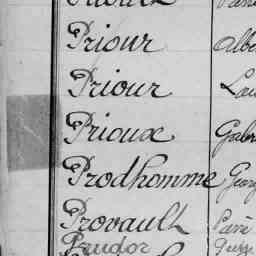 Priour Albe
Priour Lau
Prioux Gabr
Prodhomme Georg
Provault
Prudor